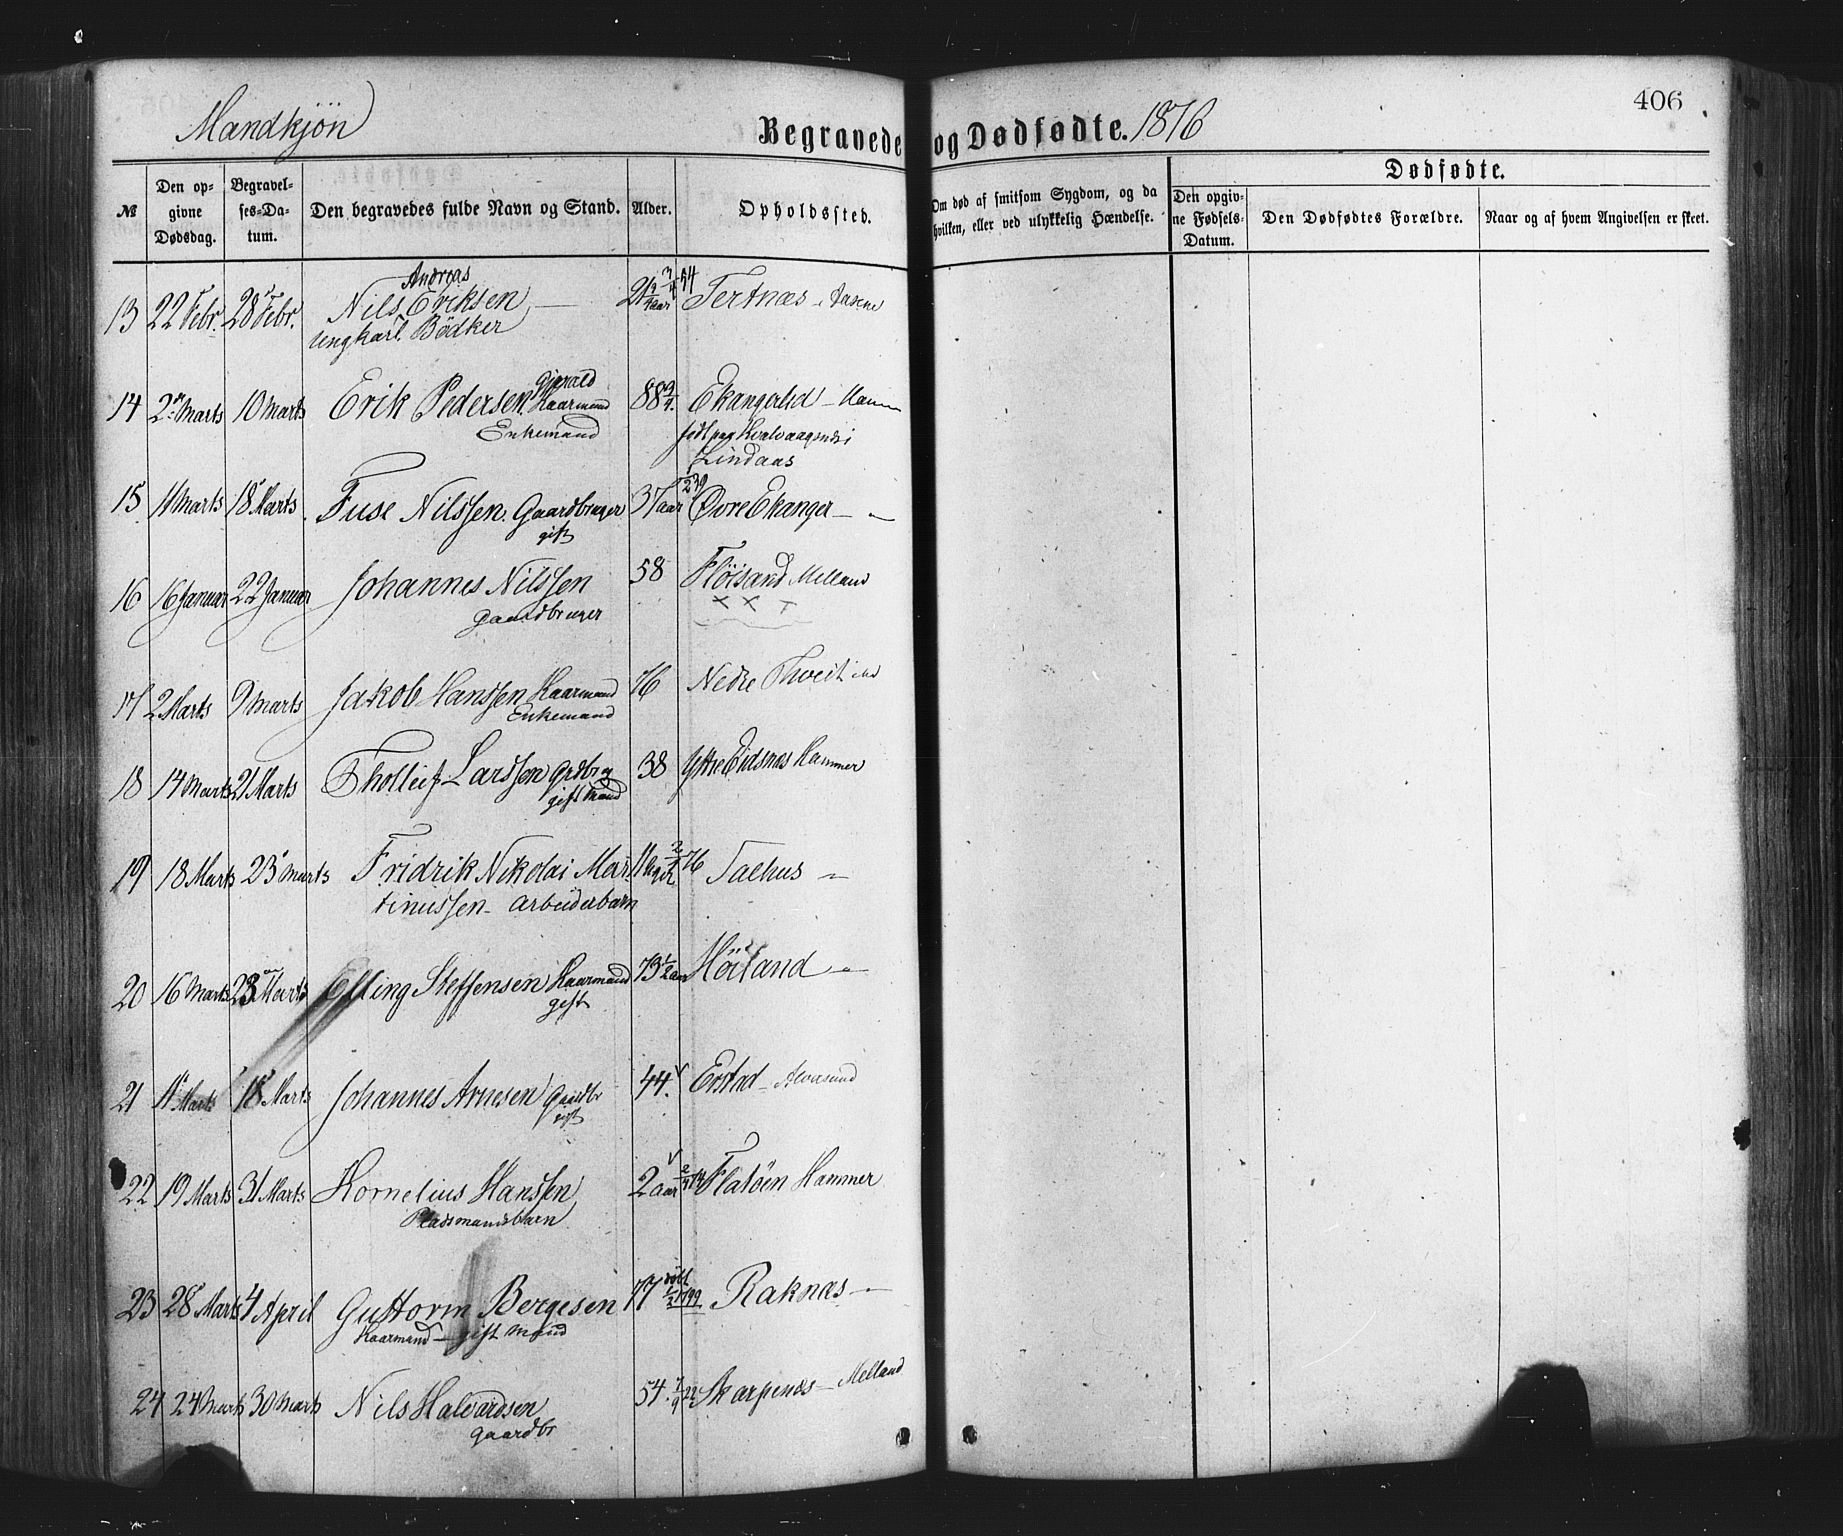 406
Mandkjön
Begravede og Dødfødte. 1876
Dødfødte.
№
Den opgivne Dødsdag.
Begravelses-Datum.
Den begravedes fulde Navn og Stand.
Alder.
Opholdssted.
Om død af smitsom Sygdom, og da hvilken, eller ved ulykkelig Hændelse.
Den opgivne Fødsels-Datum.
Den Dødfødtes Forældre.
Naar og af hvem Angivelsen er skeet.
Andreas
13 22 Febr. 28 Febr. Nils Eriksen 21 aar 54 Tertnæs
Ungkarl. Bödker
14 2 Marts 10 Marts Erik Pedersen Kaarmand 88 Ekanger
Enkemand
Lindaas
15 11 Marts 18 Marts Fuse Nilssen. Gaardbruger 37 aar 39 Øvre Ekanger — "
gift
16 16 Januar 22 Januar Johannes Nilssen 58 Flöisand Melland
Gaardbruger
17 2 Marts 9 Marts Jakob Hanssen Kaarmand 76 Nedre Thveit
Enkemand
18 14 Marts 21 Marts Tholleif Larssen Grdbrg 38 Ytre Eidsnes Hammer
gift Mand
19 18 Marts 23 Marts Fridrik Nikolai Mar 76 Taehus "
tinussen - Arbeiderbarn
20 16 Marts 23 Marts Elling Steffensen Kaarmand 73 1/2 aar Höiland "
gift
21 11 Marts 18 Marts Johannes Arnesen Gaardbr 44. Erstad - Alvesund
gift
22 19 Marts 31 Marts Kornelius Hanssen 2 aar Flatöen Hammer
Pladsmandsbarn
23 28 Marts 4 April Guttorm Bergesen 77 döbt 1799 Raknæs — "
Kaarmand — gift Mand
24 24 Marts 30 Marts Nils Halvardsen 54. 7/9 22 Skarpenes — Melland
Gaardbr